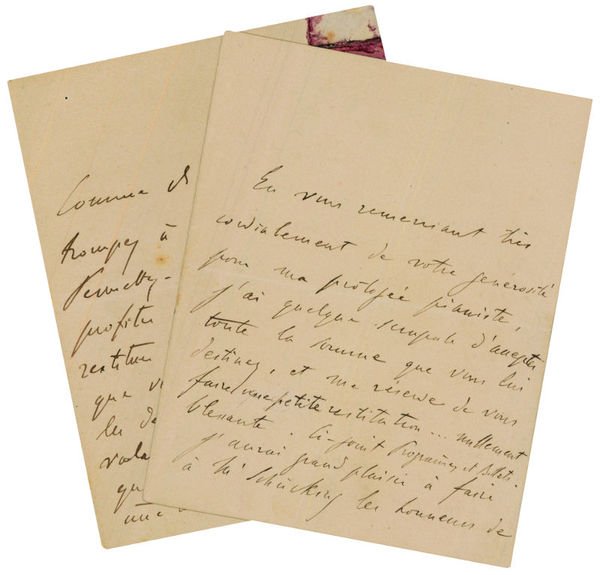 Comme d
trompez à
Permettez-
profiter
restituer
que v
les de
vala
qu
une
En vous remerciant très
cordialement de votre générosité
pour ma protégée pianiste,
j'ai quelque scrupule d'accepter
toute la somme que vous lui
destinez, et me réserve de vous
faire une petite restitution... nullement
blessante : Ci-joint Programmes et Billets.
J'aurai grand plaisir à faire
à Mr Schücking les honneurs de